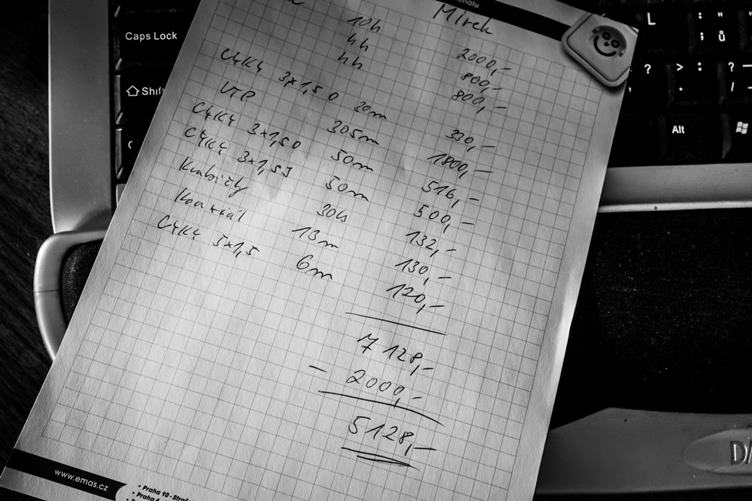 Mirek
10h 2000,-
4h 800,-
4h 800,-
CYKY 3x1,5 O 20m 330,-
UTP 305m 1800,-
CYKY 3x1,5 O 50m 516,-
CYKY 3x1,5 J 50m 500,-
Krabičky 30ks 132,-
Koaxiál 13m 130,-
CYKY 5x1,5 6m 120,-
7 128,-
- 2000,-
5128,-
www.emas.cz
• Praha 10 -
• Praha
Caps Lock
Shift
L
Alt